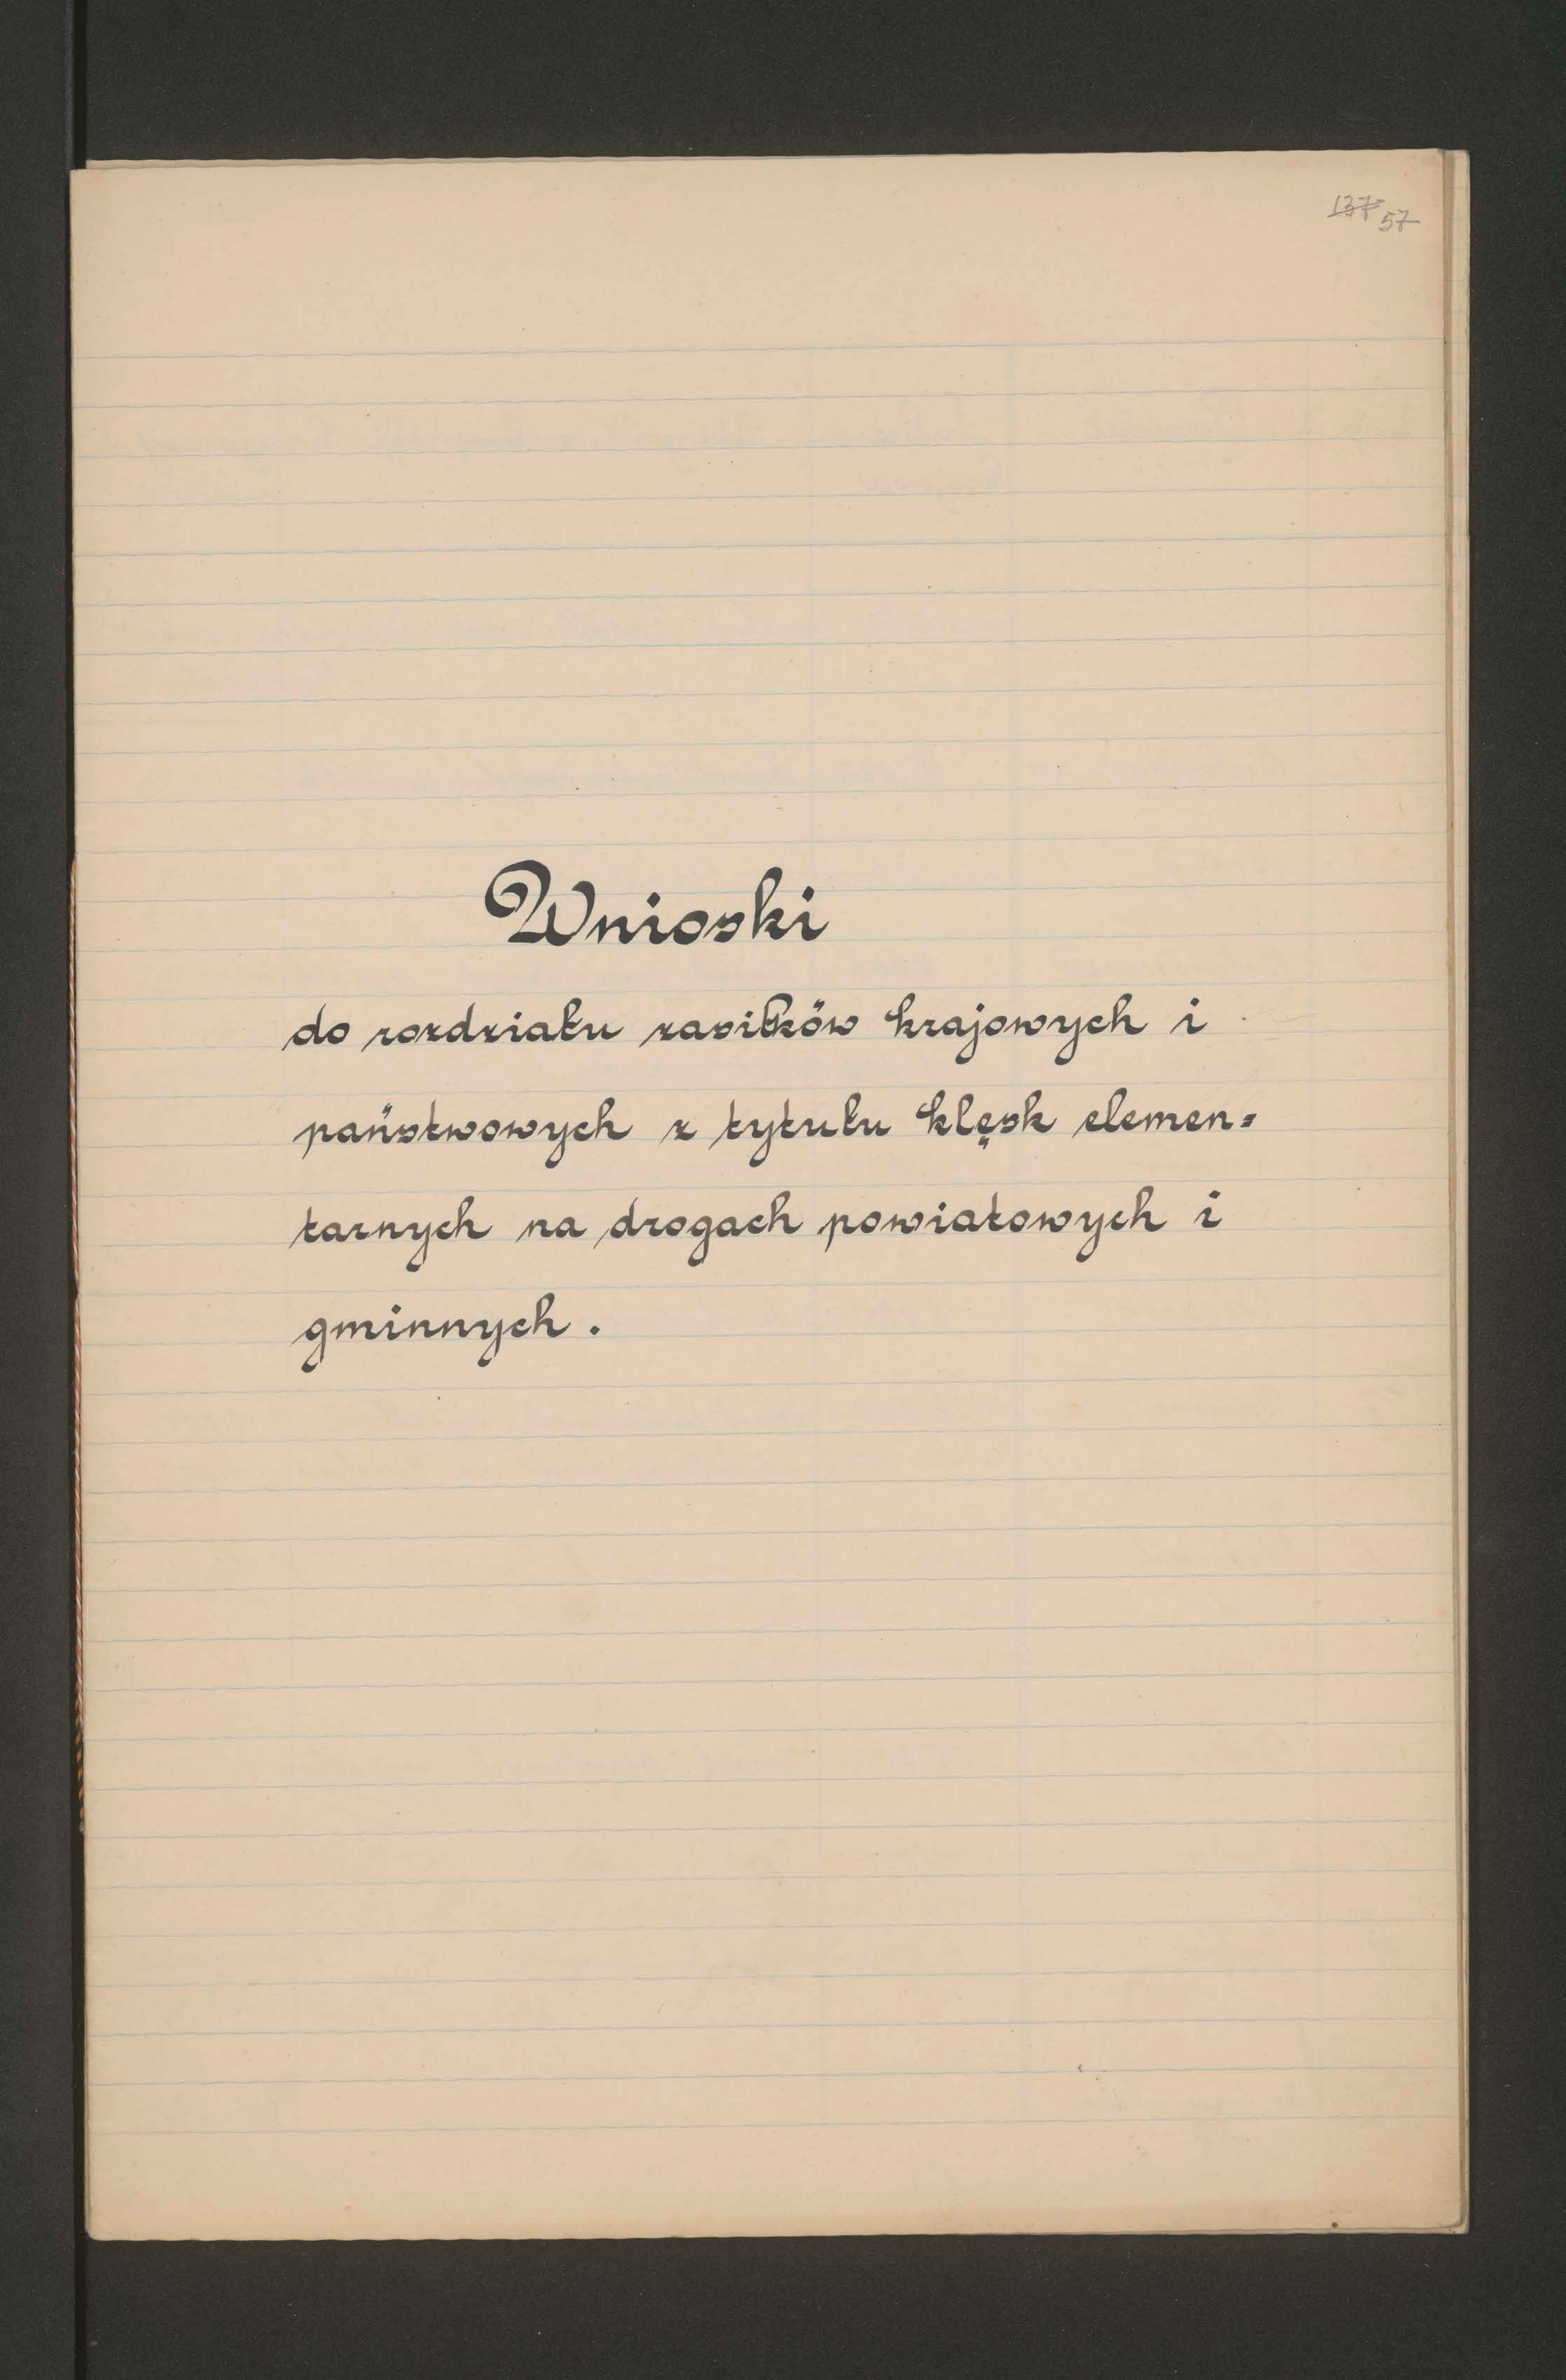 137 57
Wnioski
do rozdziału zasiłków krajowych i
państwowych z tytułu klęsk elemen=
tarnych na drogach powiatowych i
gminnych.